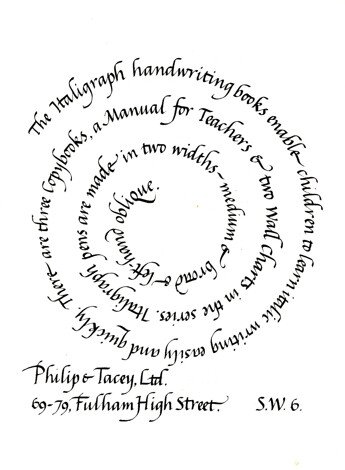 The Italigraph handwriting books enable children to learn italic writing easily and quickly. There are three Copybooks, a Manual for Teachers & two Wall Charts in the series. Italigraph pens are made in two widths – medium & broad & left-hand oblique.
Philip & Tacey, Ltd.
69-79, Fulham High Street. S.W. 6.